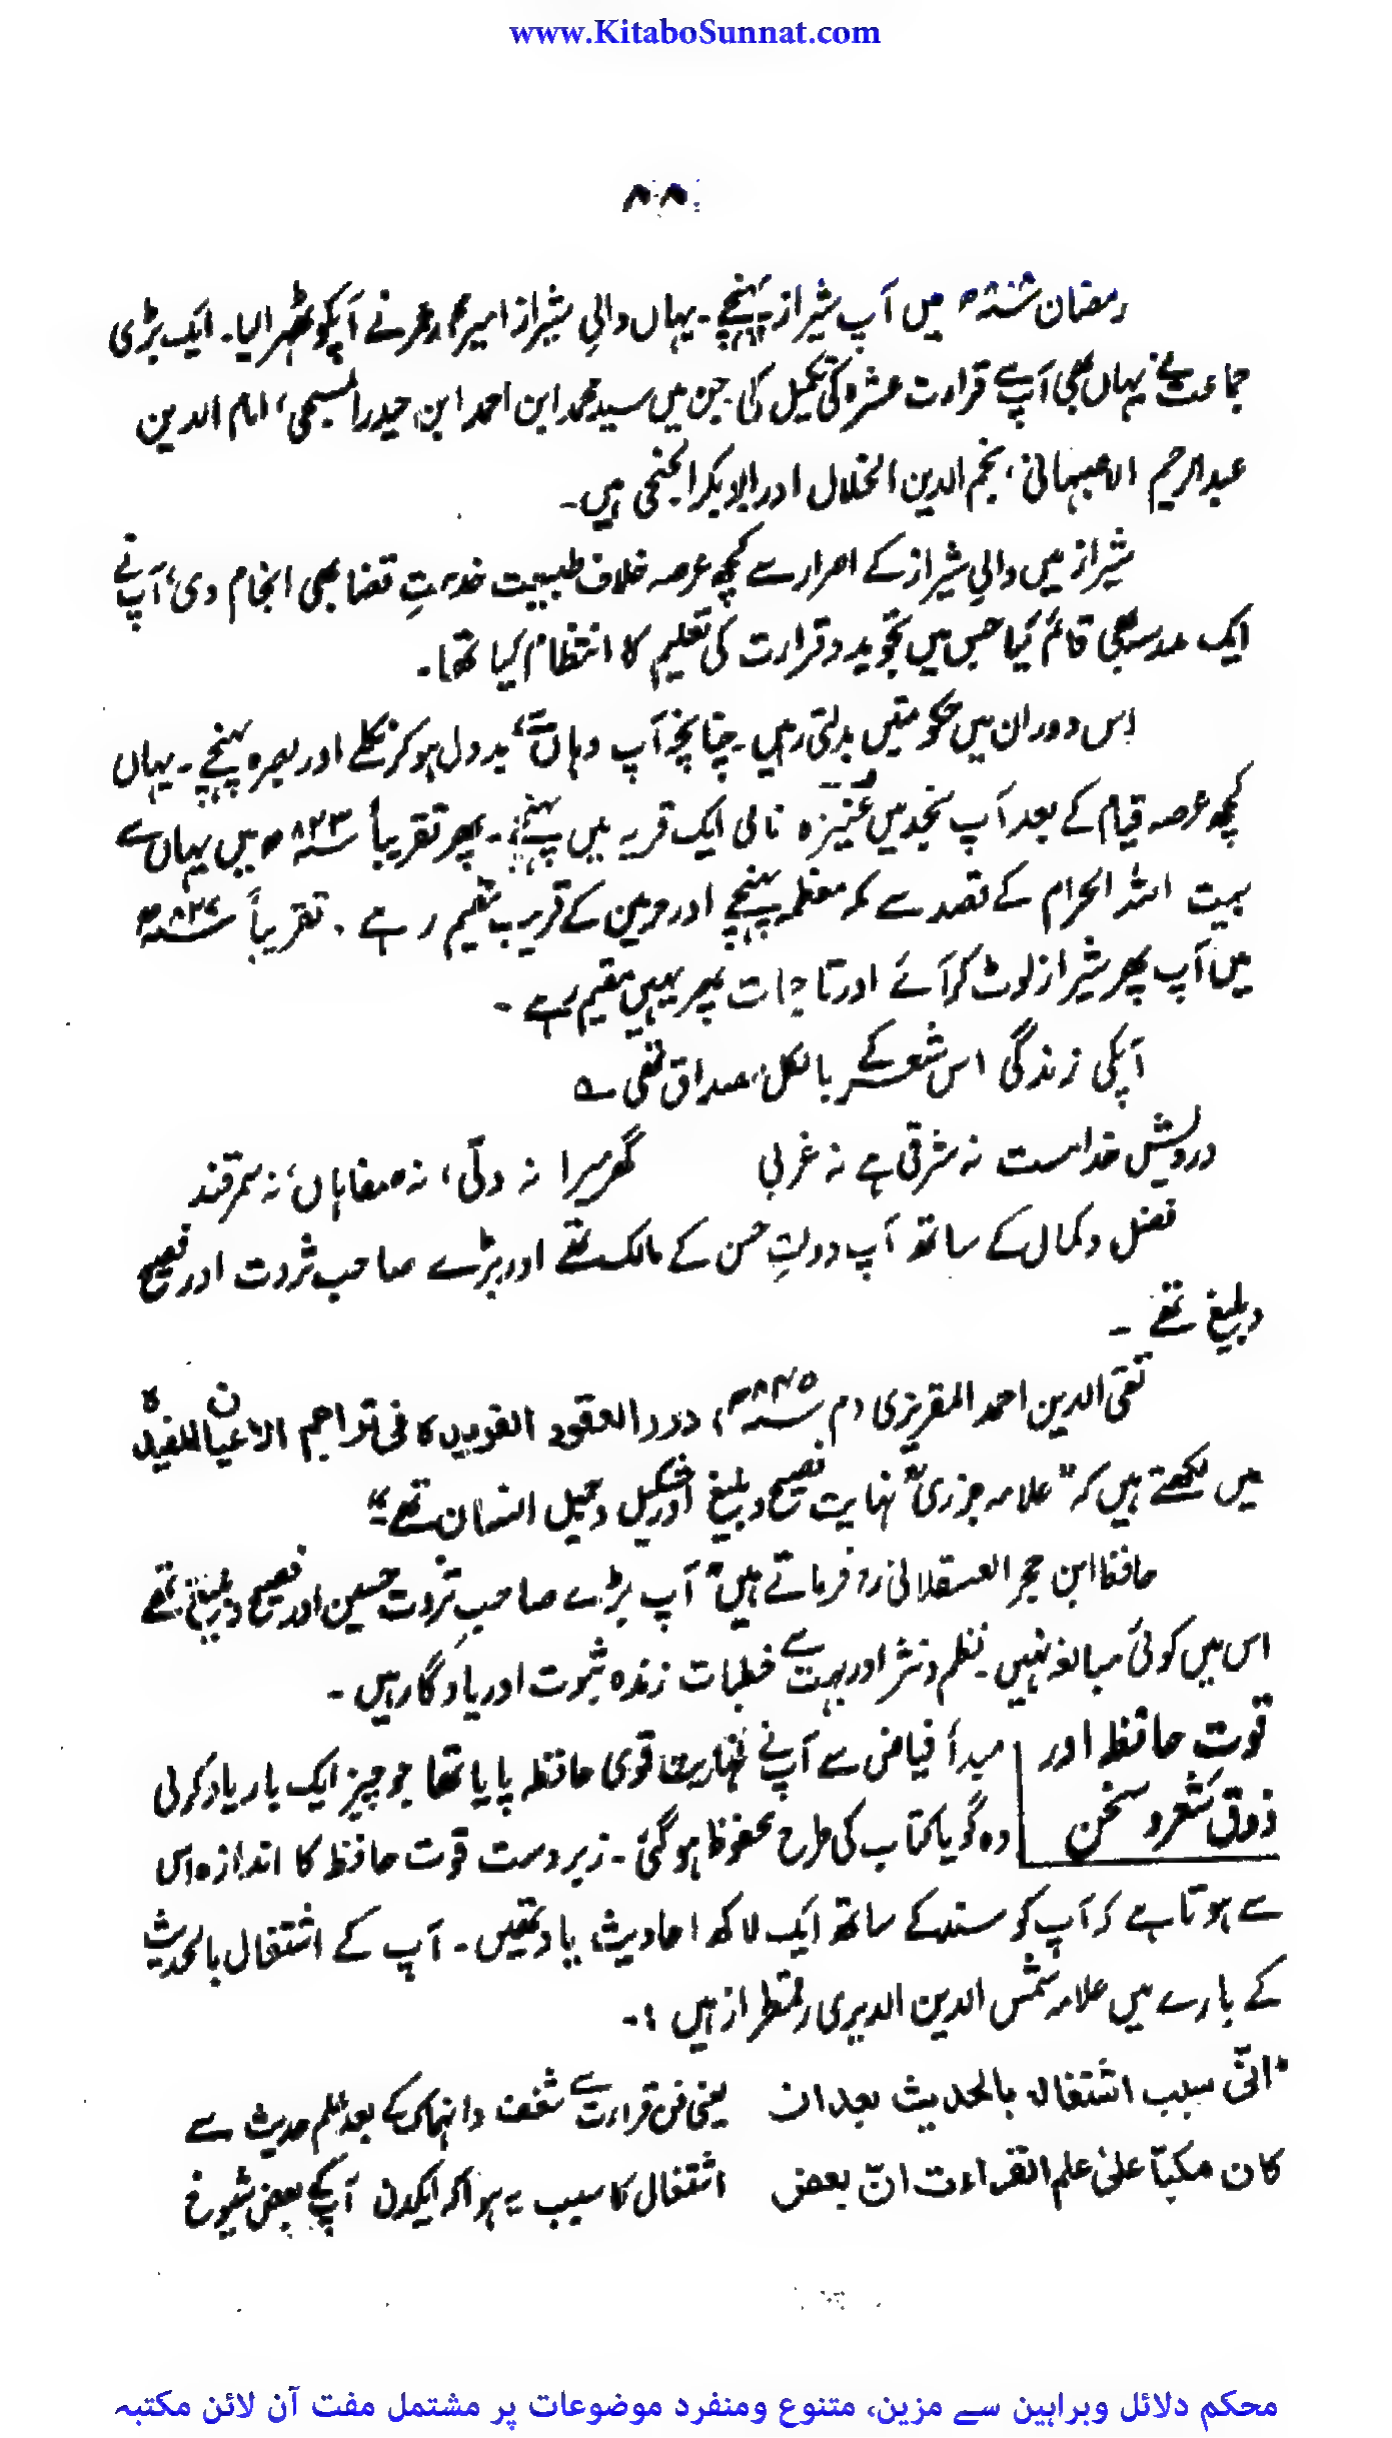 www.KitaboSunnat.com
۸۸
رمضان سنہ ۸۰۸ھ میں آپ شیراز پہنچے۔ یہاں والیِ شیراز امیر محمد وعمر نے آپکو ٹھہرالیا۔ ایک بڑی
جماعت نے یہاں بھی آپ سے قراءت عشرہ کی تکمیل کی۔ جن میں سید محمد ابن احمد ابن حیدر المسبحی، امام الدین
عبدالرحیم الاصبہانی، نجم الدین الخلال اور ابوبکر الجنحی ہیں۔
شیراز میں والیِ شیراز کے اصرار سے کچھ عرصہ خلاف طبیعت خدمتِ قضا بھی انجام دی، آپ نے
ایک مدرسہ بھی قائم کیا جس میں تجوید وقراءت کی تعلیم کا انتظام کیا تھا۔
اِس دوران میں حکومتیں بدلتی رہیں۔ چنانچہ آپ وہاں سے بددل ہوکر نکلے اور بصرہ پہنچے۔ یہاں
کچھ عرصہ قیام کے بعد آپ نجد میں عُنَیزہ نامی ایک قریہ میں پہنچے۔ پھر تقریباً سنہ ۸۲۳ھ میں یہاں سے
بیت اللہ الحرام کے قصد سے مکہ معظمہ پہنچے اور حرمین کے قریب مقیم رہے۔ تقریباً سنہ ۸۲۷ھ
میں آپ پھر شیراز لوٹ کر آئے اور تا حیات پھر یہیں مقیم رہے۔
آپکی زندگی اس شعر کے بالکل مصداق تھی ؎
درویش خدامست نہ شرقی ہے نہ غربی گھر میرا نہ دلّی، نہ صفاہاں، نہ سمرقند
فضل وکمال کے ساتھ آپ دولتِ حسن کے مالک تھے اور بڑے صاحب ثروت اور فصیح
وبلیغ تھے۔
تقی الدین احمد المقریزی (م سنہ ۸۴۵ھ) درر العقود الفریدۃ فی تراجم الاعیان المفیدۃ
میں لکھتے ہیں کہ "علامہ جزری" نہایت فصیح وبلیغ اور شکیل وجمیل انسان تھے"
حافظ ابن حجر العسقلانی رح فرماتے ہیں" آپ بڑے صاحبِ ثروت حسین اور فصیح وبلیغ تھے
اس میں کوئی مبالغہ نہیں۔ نظم ونثر اور بہت سے خطبات زندہ ثبوت اور یادگار ہیں۔
قوتِ حافظہ اور
ذوقِ شعر وسخن
مبدأ فیاض سے آپ نے نہایت قوی حافظہ پایا تھا جو چیز ایک بار یاد کرلی
وہ گویا کتاب کی طرح محفوظ ہوگئی۔ زبردست قوت حافظہ کا اندازہ اس
سے ہوتا ہے کہ آپ کو سند کے ساتھ ایک لاکھ احادیث یاد تھیں۔ آپ کے اشتغال بالحدیث
کے بارے میں علامہ شمس الدین الدیری رقمطراز ہیں:۔
"انّی سبب اشتغالہ بالحدیث بعد ان یعنی فن قراءت سے شغف وانہماک کے بعد علم حدیث سے
کان مکبّاً علیٰ علم القراءت انّ بعض اشتغال کا سبب یہ ہوا کہ ایکدن آپ کے بعض شیوخ
محکم دلائل وبراہین سے مزین، متنوع ومنفرد موضوعات پر مشتمل مفت آن لائن مکتبہ